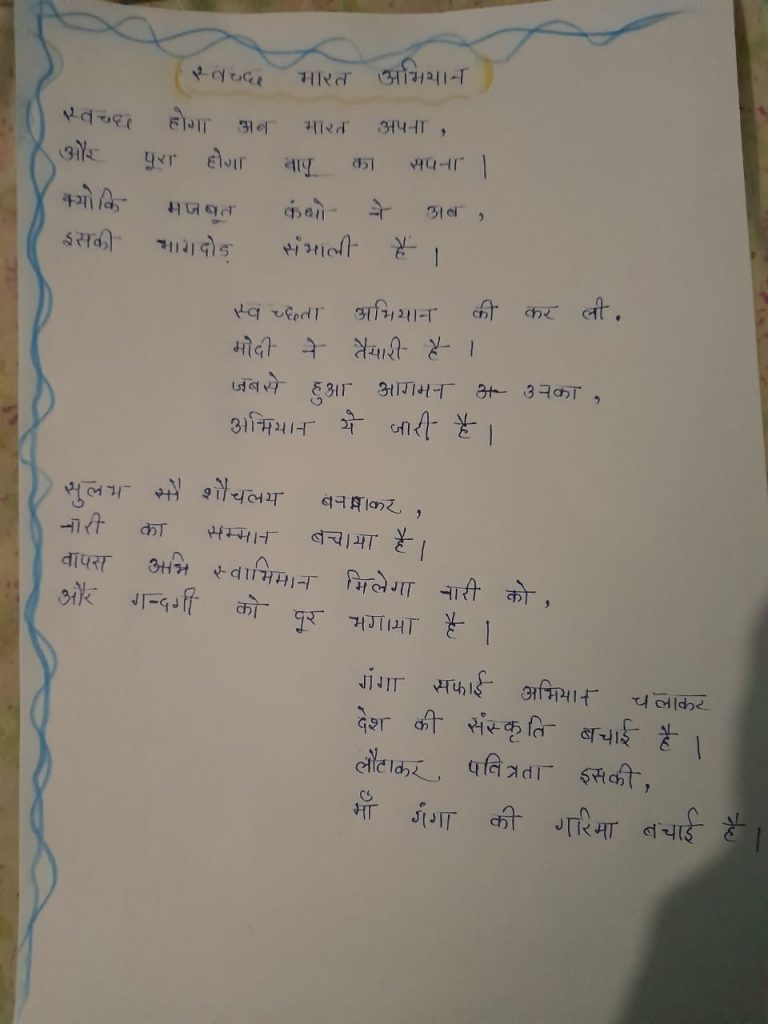 स्वच्छ भारत अभियान
स्वच्छ होगा अब भारत अपना,
और पूरा होगा बापू का सपना।
क्योकि मजबूत कंधो ने अब,
इसकी भागदोड़ संभाली है।
स्वच्छता अभियान की कर ली.
मोदी ने तैयारी है।
जबसे हुआ आगमन उनका,
अभियान ये जारी है।
सुलभ शौचलय बनवाकर,
नारी का सम्मान बचाया है।
वापस स्वाभिमान मिलेगा नारी को,
और गन्दगी को दूर भगाया है।
गंगा सफाई अभियान चलाकर
देश की संस्कृति बचाई है।
लौटाकर पवित्रता इसकी,
माँ गंगा की गरिमा बचाई है।